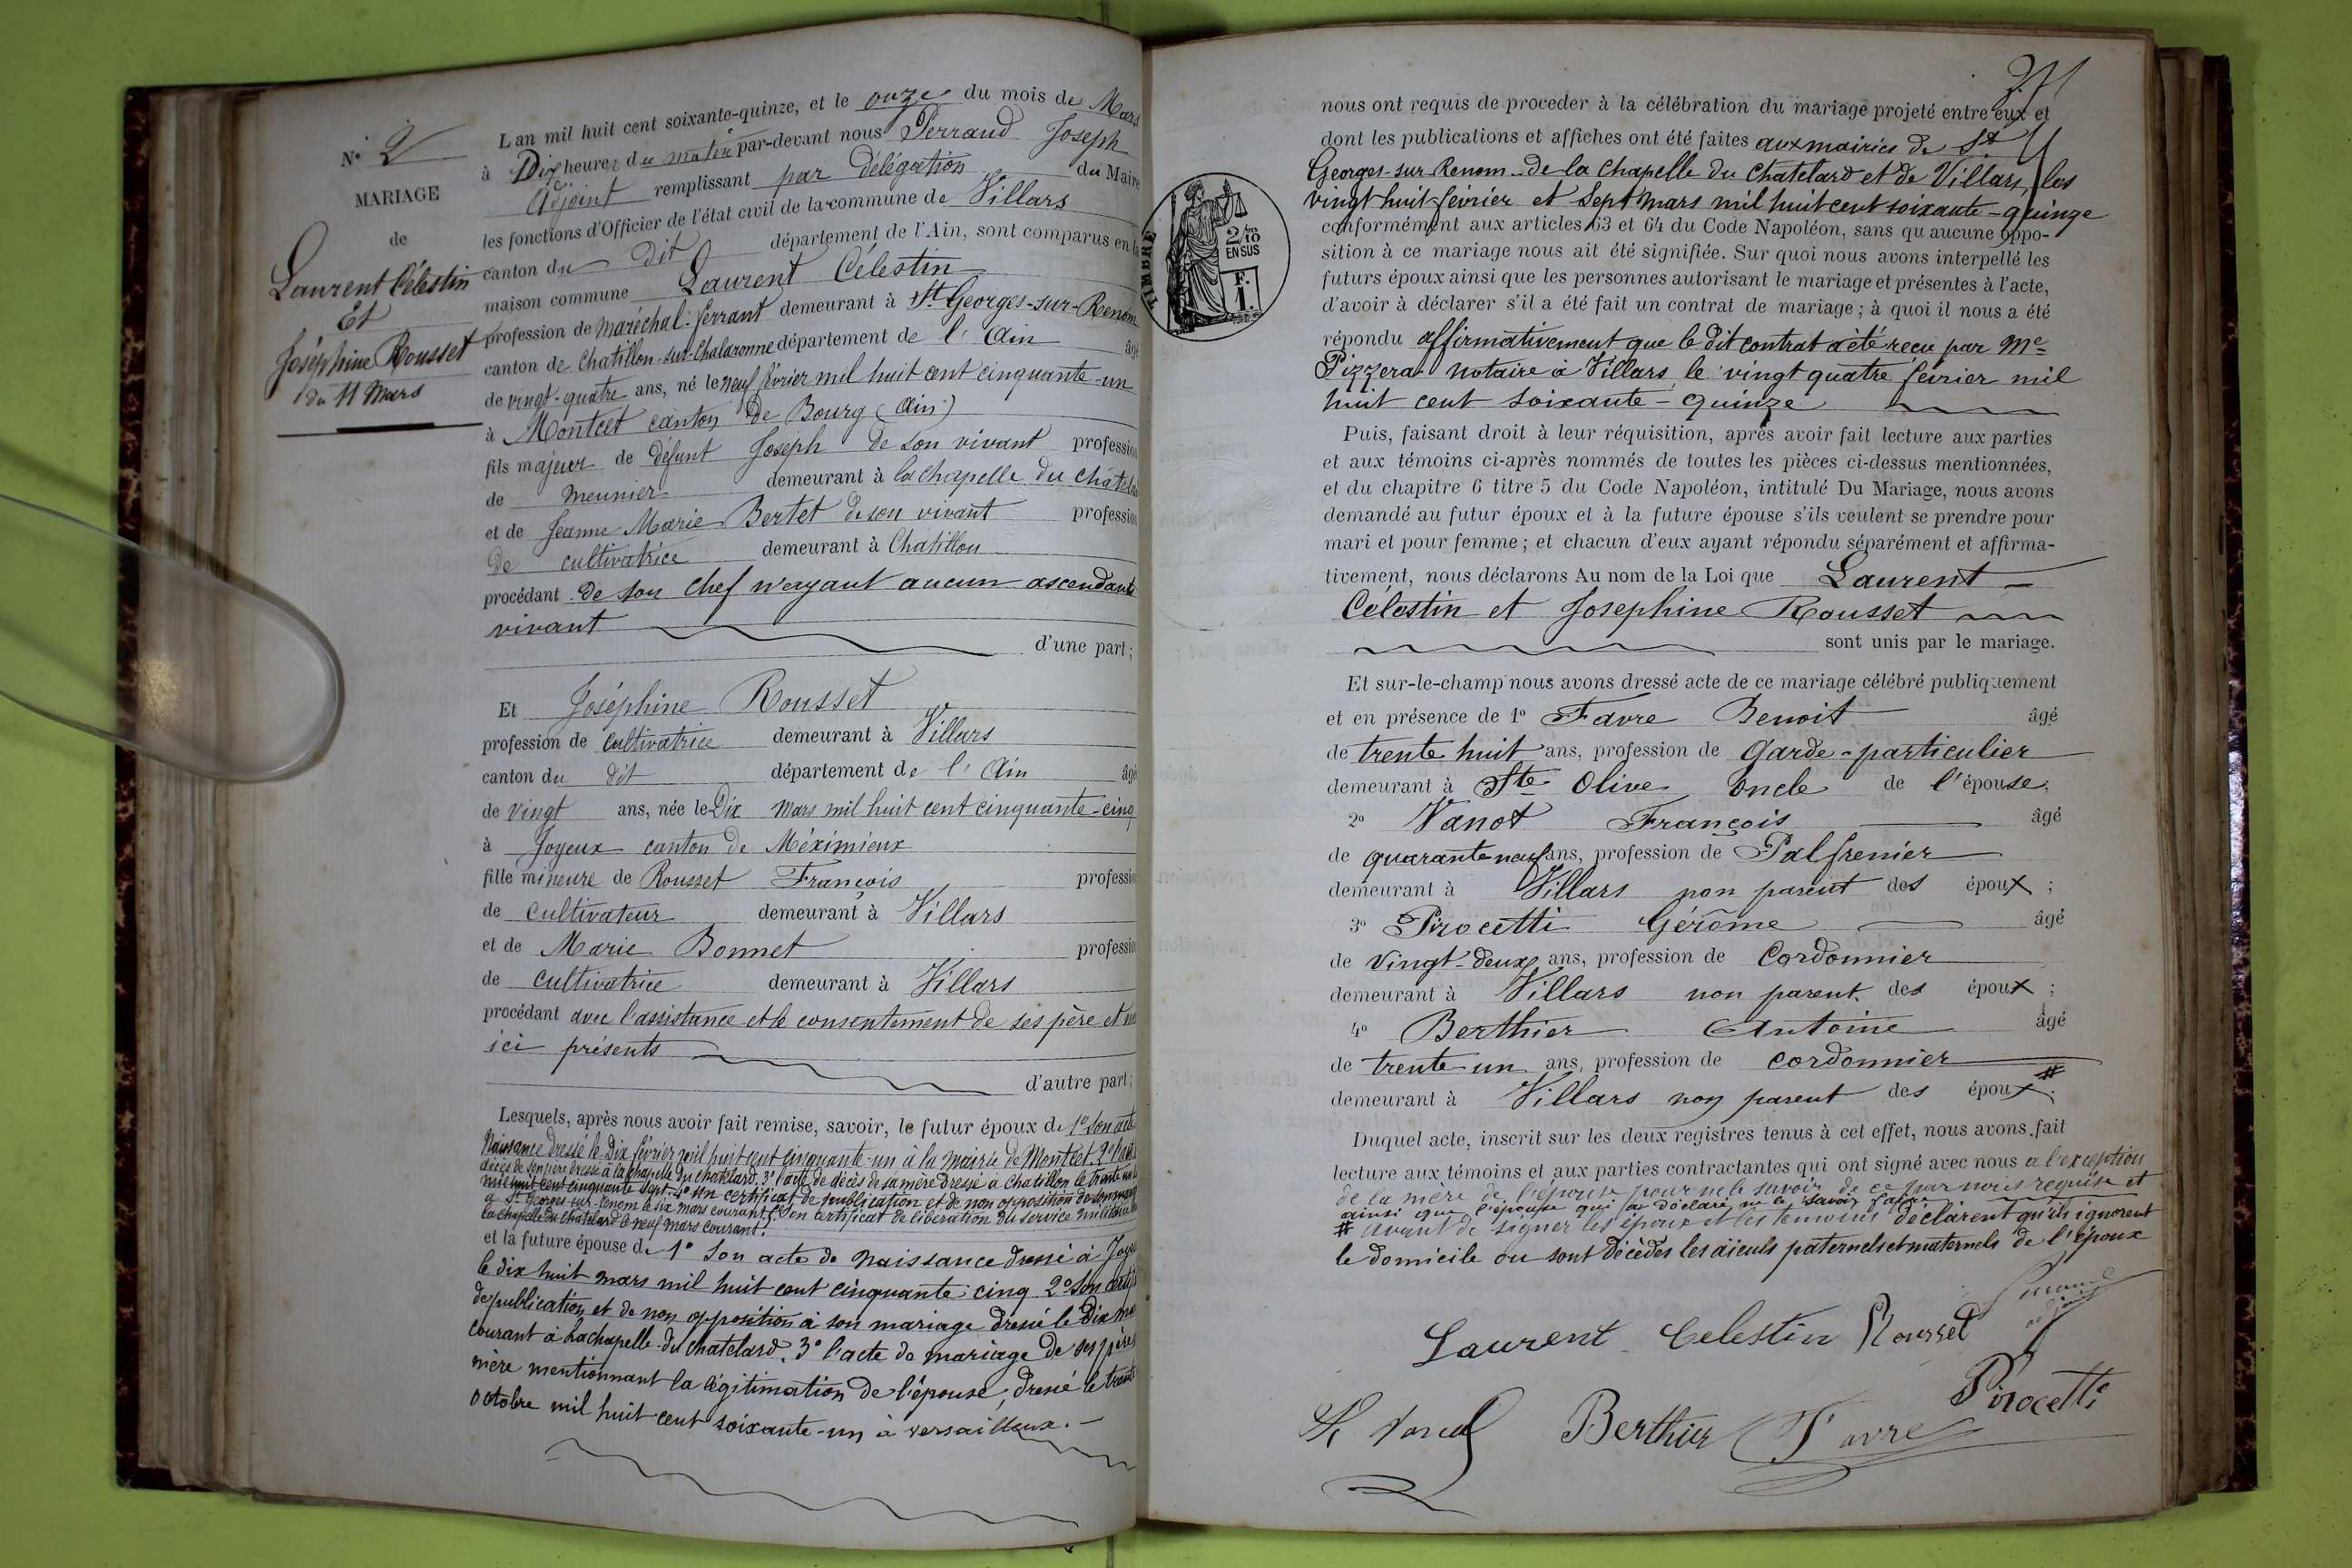 N° 2
MARIAGE
de
Laurent Célestin
Et
Joséphine Rousset
du 11 Mars
L an mil huit cent soixante-quinze, et le onze du mois de Mars
à Dix heures du matin par-devant nous Perraud Joseph
Adjoint remplissant par délégation du Maire
les fonctions d'Officier de l'état civil de la commune de Villars
canton du dit département de l'Ain, sont comparus en la
maison commune Laurent Célestin
profession de maréchal-ferrant demeurant à St Georges-sur-Renom
canton de Chatillon-sur-Chalaronne département de l'Ain âgé
de vingt-quatre ans, né le neuf février mil huit cent cinquante-un
à Montcet canton de Bourg (Ain)
fils majeur de défunt Joseph de son vivant profession
de meunier demeurant à la chapelle du châtela
et de Jeanne Marie Bertet de son vivant profession
de cultivatrice demeurant à Chatillon
procédant de son chef n'ayant aucun ascendant
vivant
d'une part;
Et Joséphine Rousset
profession de cultivatrice demeurant à Villars
canton du dit département de l'Ain âgé
de vingt ans, née le Dix mars mil huit cent cinquante-cinq
à Joyeux canton de Méximieux
fille mineure de Rousset François profession
de cultivateur demeurant à Villars
et de Marie Bonnet profession
de cultivatrice demeurant à Villars
procédant avec l'assistance et le consentement de ses père et
ici présents
d'autre part;
Lesquels, après nous avoir fait remise, savoir, le futur époux de 1° son acte
Naissance dressé le Dix février mil huit cent cinquante-un à la mairie de Montcet. 2°
décès de son père dressé à la chapelle du chatelard, 3° l'acte de décès de sa mère dressé à chatillon le trente
mil huit cent cinquante sept. 4° un certificat de publication et de non opposition de son mariage
à St Georges-sur-Renom le six mars courant Son certificat de libération du service militaire
la chapelle du chatelard le neuf mars courant.
et la future épouse de 1° Son acte de naissance dressé à Joye
le dix huit mars mil huit cent cinquante-cinq 2° Son certif
de publication et de non opposition à son mariage dressé le Dix ma
courant à Lachapelle-du chatelard. 3° l'acte de mariage de ses père
mère mentionnant la légitimation de l'épouse, dressé le trente
octobre mil huit cent soixante-un à versailleux.
nous ont requis de proceder à la célébration du mariage projeté entre eux et
dont les publications et affiches ont été faites aux mairies de St
Georges-sur-Renom de la chapelle du chatelard et de Villars, les
vingt huit février et sept mars mil huit cent soixante-quinze
conformément aux articles 63 et 64 du Code Napoléon, sans qu aucune oppo-
sition à ce mariage nous ait été signifiée. Sur quoi nous avons interpellé les
futurs époux ainsi que les personnes autorisant le mariage et présentes à l'acte,
d'avoir à déclarer s'il a été fait un contrat de mariage; à quoi il nous a été
répondu affirmativement que le dit contrat a été reçu par Me
Pizzera notaire à Villars, le vingt quatre février mil
huit cent soixante-quinze
TIMBRE
2/10
EN SUS
F.
1.
Puis, faisant droit à leur réquisition, après avoir fait lecture aux parties
et aux témoins ci-après nommés de toutes les pièces ci-dessus mentionnées,
et du chapitre 6 titre 5 du Code Napoléon, intitulé Du Mariage, nous avons
demandé au futur époux et à la future épouse s'ils veulent se prendre pour
mari et pour femme; et chacun d'eux ayant répondu séparément et affirma-
tivement, nous déclarons Au nom de la Loi que Laurent
Célestin et Josephine Rousset
sont unis par le mariage.
Et sur-le-champ nous avons dressé acte de ce mariage célébré publiquement
et en présence de 1° Favre Benoit âgé
de trente huit ans, profession de Garde-particulier
demeurant à Ste Olive oncle de l'épouse;
2° Vanot François âgé
de quarante neuf ans, profession de Palfrenier
demeurant à Villars non parent des époux;
3° Pirocetti Gérôme âgé
de vingt-deux ans, profession de Cordonnier
demeurant à Villars non parent des époux;
4° Berthier Antoine âgé
de trente-un ans, profession de cordonnier
demeurant à Villars non parent des époux. #
Duquel acte, inscrit sur les deux registres tenus à cet effet, nous avons fait
lecture aux témoins et aux parties contractantes qui ont signé avec nous a l'exception
de la mère de l'épouse pour ne le savoir de ce par nous requise et
ainsi que l'épouse qui a déclaré ne le savoir faire
# avant de signer les époux et les temoins déclarent qu'ils ignorent
le domicile ou sont décédés les aïeuls paternels et maternels de l'époux
Laurent Celestin Rousset
Pirocetti
Berthier Favre